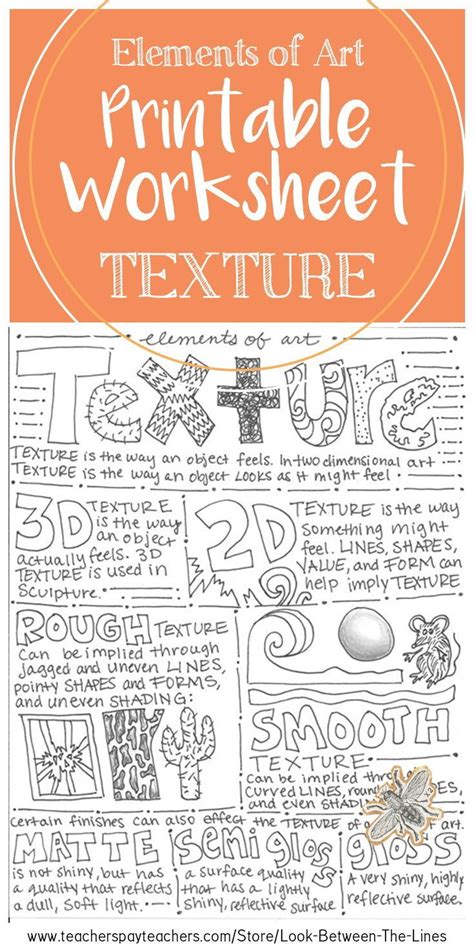 Elements of Art
Printable
Worksheet
TEXTURE
elements of art
Texture
TEXTURE is the way an object feels. In two dimensional art
TEXTURE is the way an object LOOKS as it might feel.
3D TEXTURE
is the way
an object
actually feels. 3D
TEXTURE is used in
Sculpture.
2D TEXTURE is the way
Something might
feel. LINES, SHAPES,
VALUE, and FORM can
help imply TEXTURE
ROUGH TEXTURE
can be implied through
jagged and uneven LINES,
pointy SHAPES and FORMS,
and uneven SHADING:
SMOOTH
TEXTURE:
can be implied
curved LINES,
and even
certain finishes can also effect the TEXTURE of art.
MATTE
is not shiny, but has
a quality that reflects
a dull, soft light.
semi gloss
a surface quality
that has a lightly
shiny, reflective surface
gloss
A very shiny, highly
reflective surface.
www.teacherspayteachers.com/Store/Look-Between-The-Lines